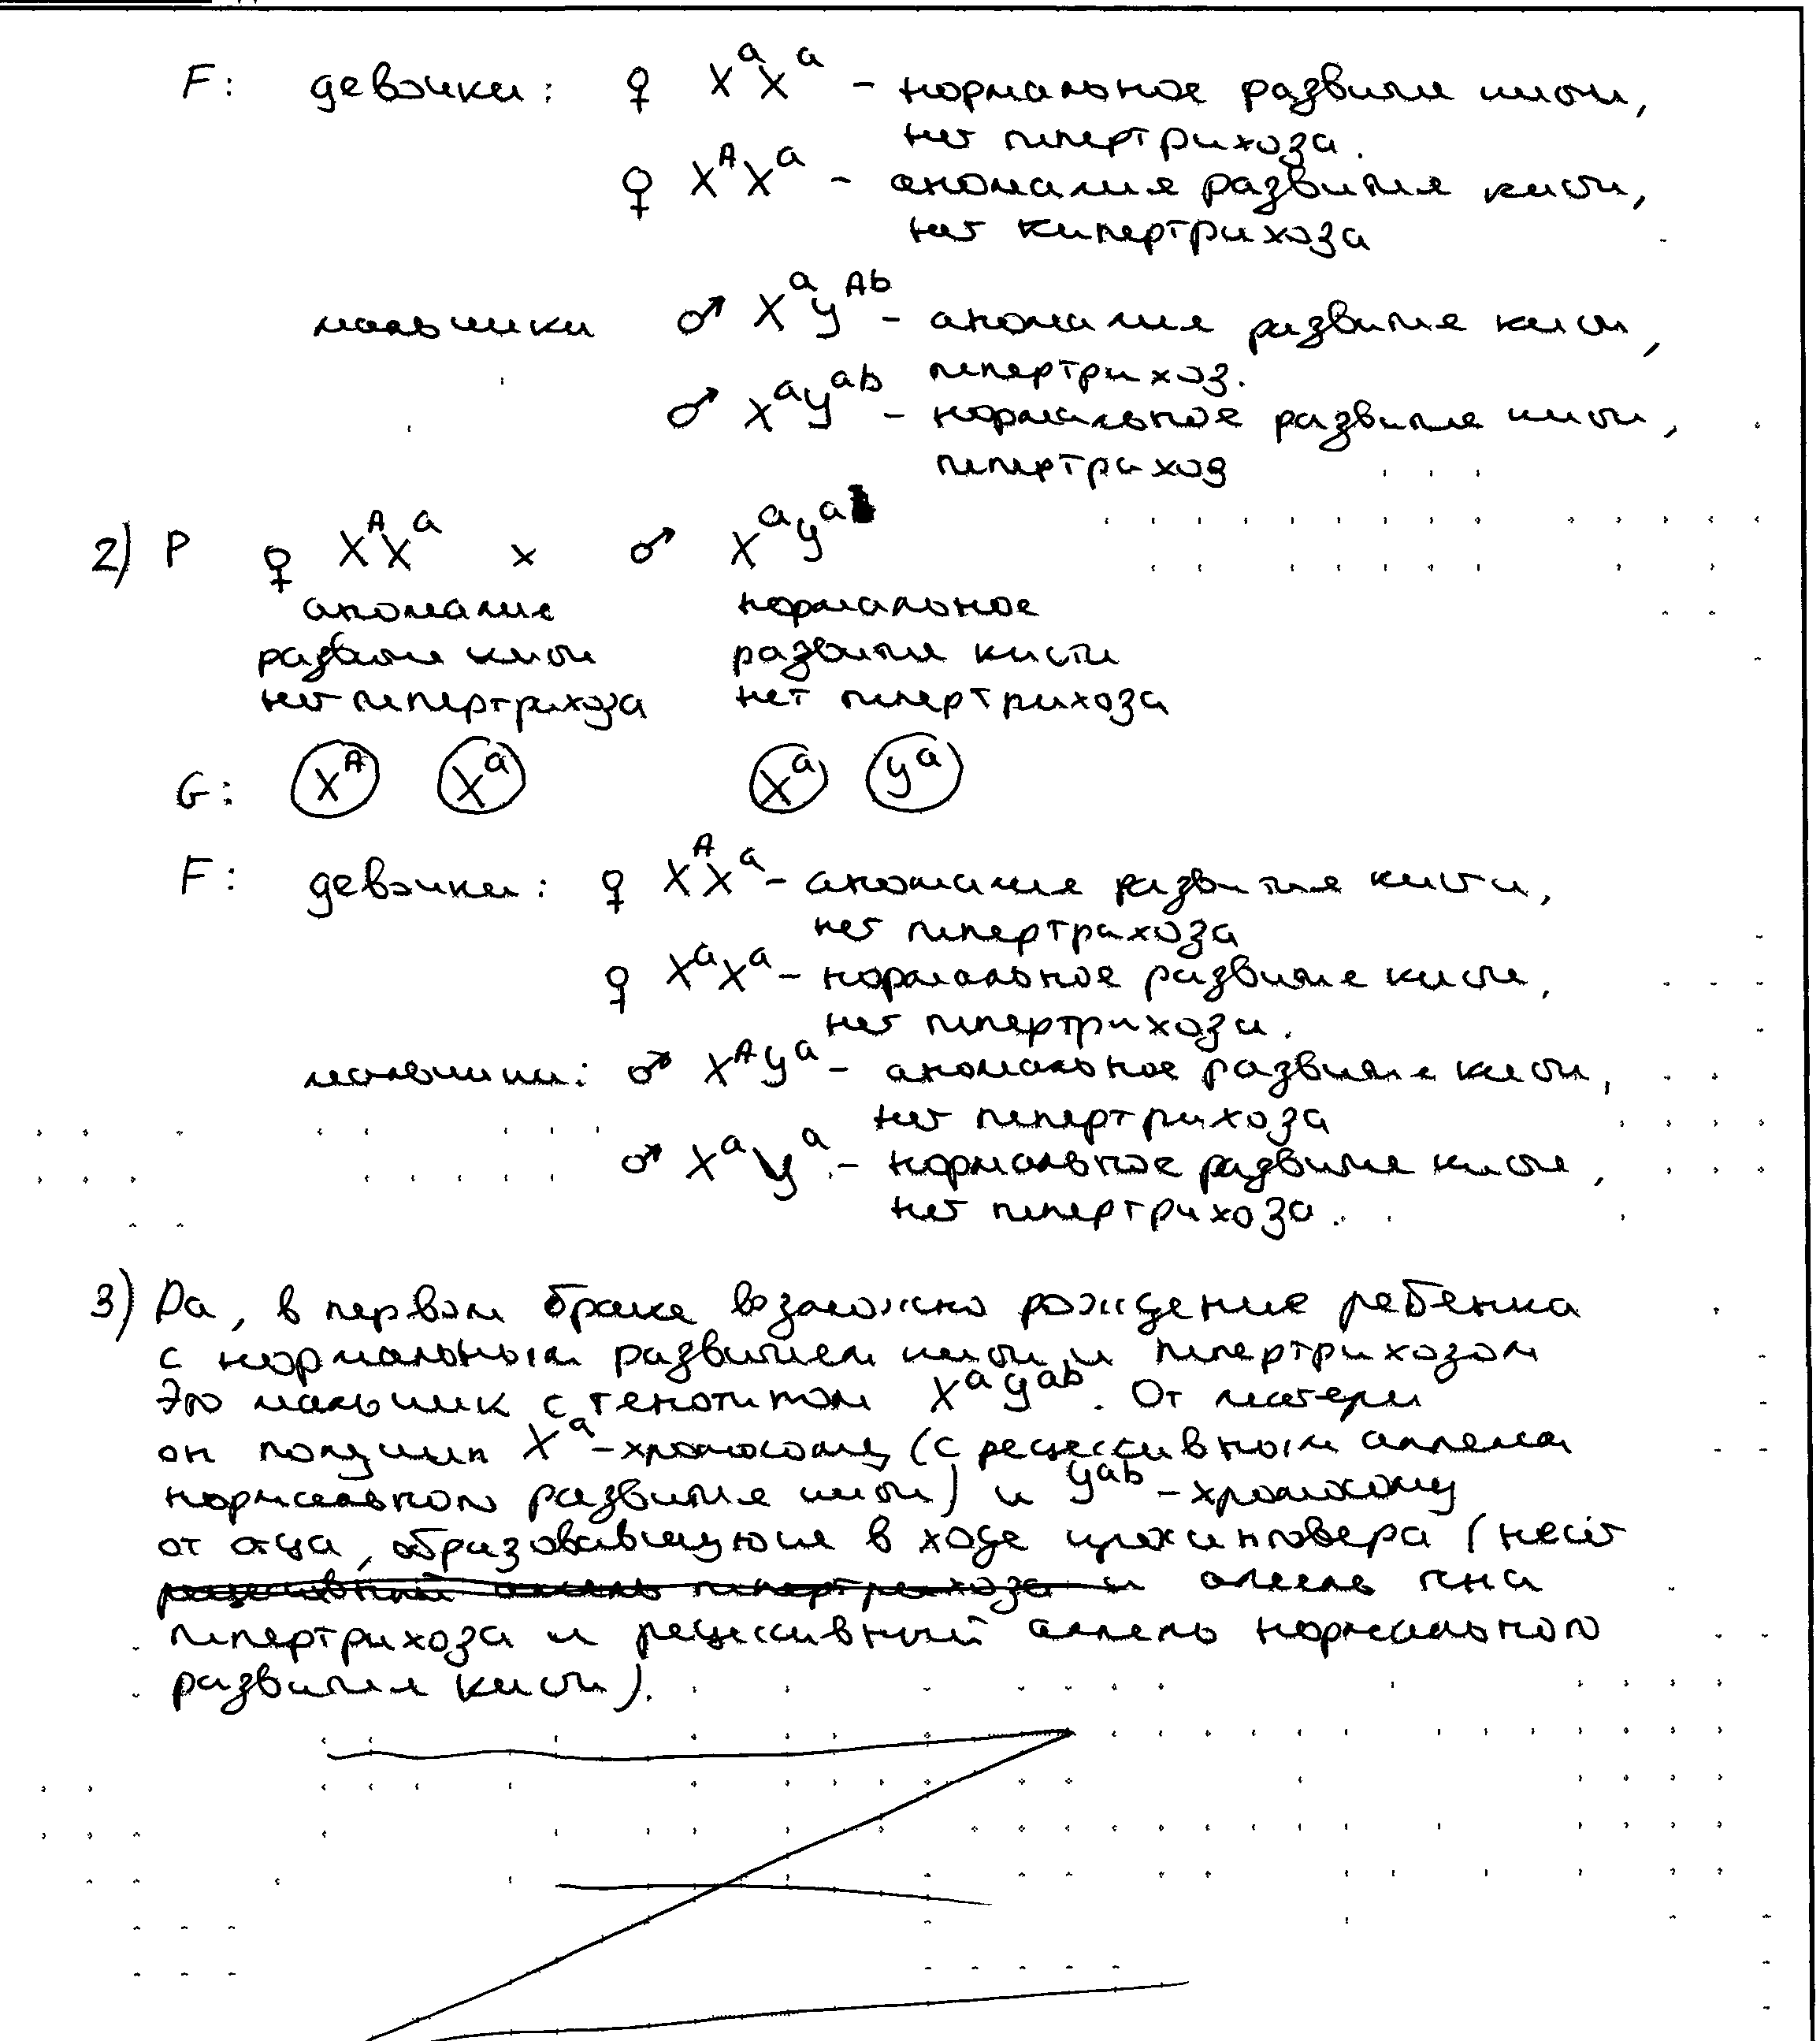 F: девочки: ♀ XᵃXᵃ – нормальное развитие кисти,
нет гипертрихоза.
♀ XᴬXᵃ – аномалия развития кисти,
нет кипертрихоза
мальчики ♂ XᵃYᴬᵇ – аномалия развития кисти,
гипертрихоз.
♂ XᵃYᵃᵇ – нормальное развитие кисти,
гипертрихоз
2) P ♀ XᴬXᵃ × ♂ XᵃYᵃ
аномалия нормальное
развития кисти развитие кисти
нет гипертрихоза нет гипертрихоза
G: Xᴬ Xᵃ Xᵃ Yᵃ
F: девочки: ♀ XᴬXᵃ – аномалия развития кисти,
нет гипертрихоза
♀ XᵃXᵃ – нормальное развитие кисти,
нет гипертрихоза.
мальчики: ♂ XᴬYᵃ – аномальное развитие кисти,
нет гипертрихоза
♂ XᵃYᵃ – нормальное развитие кисти,
нет гипертрихоза.
3) Да, в первом браке возможно рождение ребенка
с нормальным развитием кисти и гипертрихозом
Это мальчик с генотипом XᵃYᵃᵇ. От матери
он получил Xᵃ-хромосому (с рецессивным аллелем
нормального развития кисти) и Yᵃᵇ-хромосому
от отца, образовавшуюся в ходе кроссинговера (несёт
рецессивный аллель гипертрихоза и аллель гена
гипертрихоза и рецессивный аллель нормального
развития кисти).